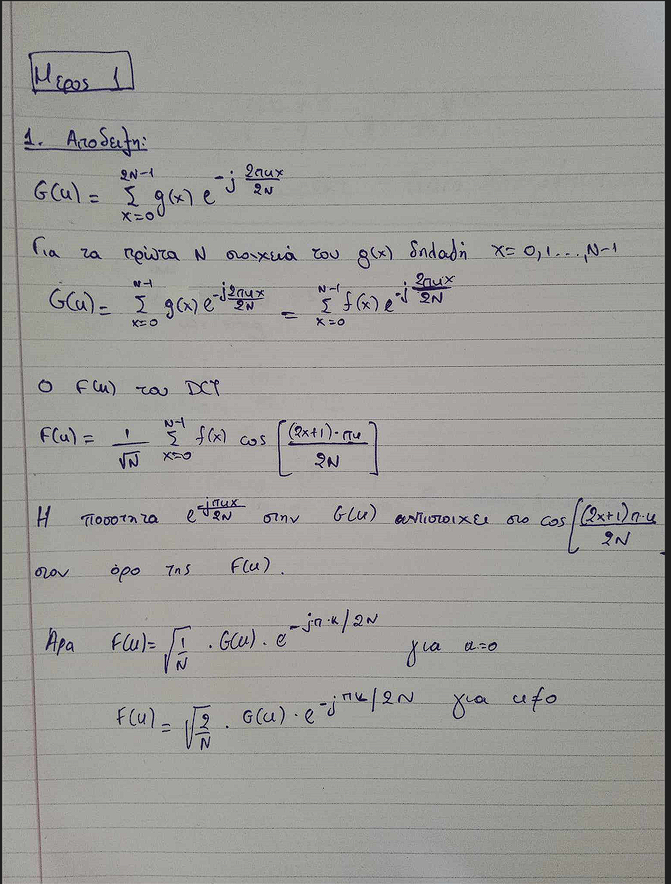 Μερος 1
1. Αποδειξη:
G(u) = Σ_{x=0}^{2N-1} g(x) e^{-j \frac{2πux}{2N}}
Για τα πρώτα N στοιχειά του g(x) δηλαδή x = 0,1...,N-1
G(u) = Σ_{x=0}^{N-1} g(x) e^{-j\frac{2πux}{2N}} = Σ_{x=0}^{N-1} f(x) e^{-j\frac{2πux}{2N}}
Ο F(u) του DCT
F(u) = \frac{1}{\sqrt{N}} Σ_{x=0}^{N-1} f(x) cos [\frac{(2x+1)·πu}{2N}]
Η ποσοτητα e^{-\frac{jπux}{2N}} στην G(u) αντιστοιχει στο cos[\frac{(2x+1)π·u}{2N}
στον όρο της F(u).
Άρα F(u) = \sqrt{\frac{1}{N}} · G(u) · e^{-j·π·u/2N} για u=0
F(u) = \sqrt{\frac{2}{N}} · G(u) · e^{-jπu/2N} για u≠0